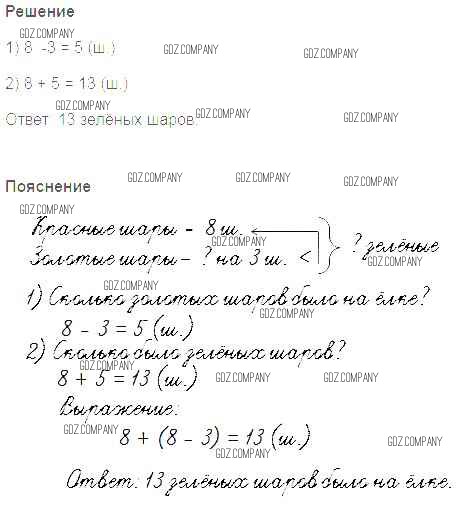 Решение
GDZ.COMPANY
1) 8 -3 = 5 (ш.)
GDZ.COMPANY
GDZ.COMPANY
2) 8 + 5 = 13 (ш.)
GDZ.COMPANY
Ответ 13 зелёных шаров.
GDZ.COMPANY
GDZ.COMPANY
Пояснение
GDZ.COMPANY
GDZ.COMPANY
GDZ.COMPANY
GDZ.COMPANY
Красные шары - 8 ш.
GDZ.COMPANY
? зелёные
Золотые шары - ? на 3 ш. <
GDZ.COMPANY
GDZ.COMPANY
1) Сколько золотых шаров было на ёлке?
GDZ.COMPANY
8 - 3 = 5 (ш.)
2) Сколько было зелёных шаров?
GDZ.COMPANY
8 + 5 = 13 (ш.)
GDZ.COMPANY
GDZ.COMPANY
Выражение:
GDZ.COMPANY
8 + (8 - 3) = 13 (ш.)
GDZ.COMPANY
GDZ.COMPANY
Ответ: 13 зелёных шаров было на ёлке.